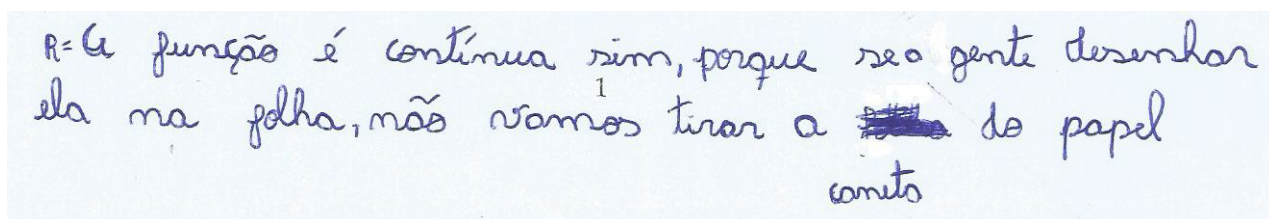 R= A função é contínua sim, porque se a gente desenhar
1
ela na folha, não vamos tirar a do papel
caneta